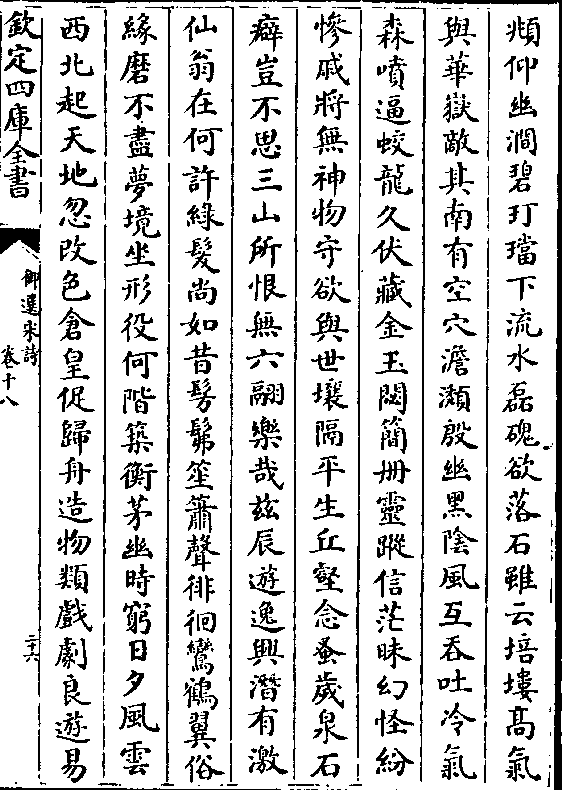 頫仰幽澗碧玎璫下流水磊磈欲落石雖云培塿髙氣
與華嶽敵其南有空穴澹瀬殷幽黑陰風互吞吐冷氣
森噴逼蛟龍久伏藏金玉閟簡册靈蹤信茫昧幻怪紛
慘戚將無神物守欲與世壤隔平生丘壑念蚤歲泉石
癖豈不思三山所恨無六翮樂哉兹辰遊逸興潛有激
仙翁在何許緑髮尚如昔髣髴笙簫聲徘徊鸞鶴翼俗
緣磨不盡夢境坐形役何階築衡茅幽時窮日夕風雲
西北起天地忽改色倉皇促歸舟造物類戲劇良遊易
欽定四庫全書
御選宋詩
卷十八
三十六